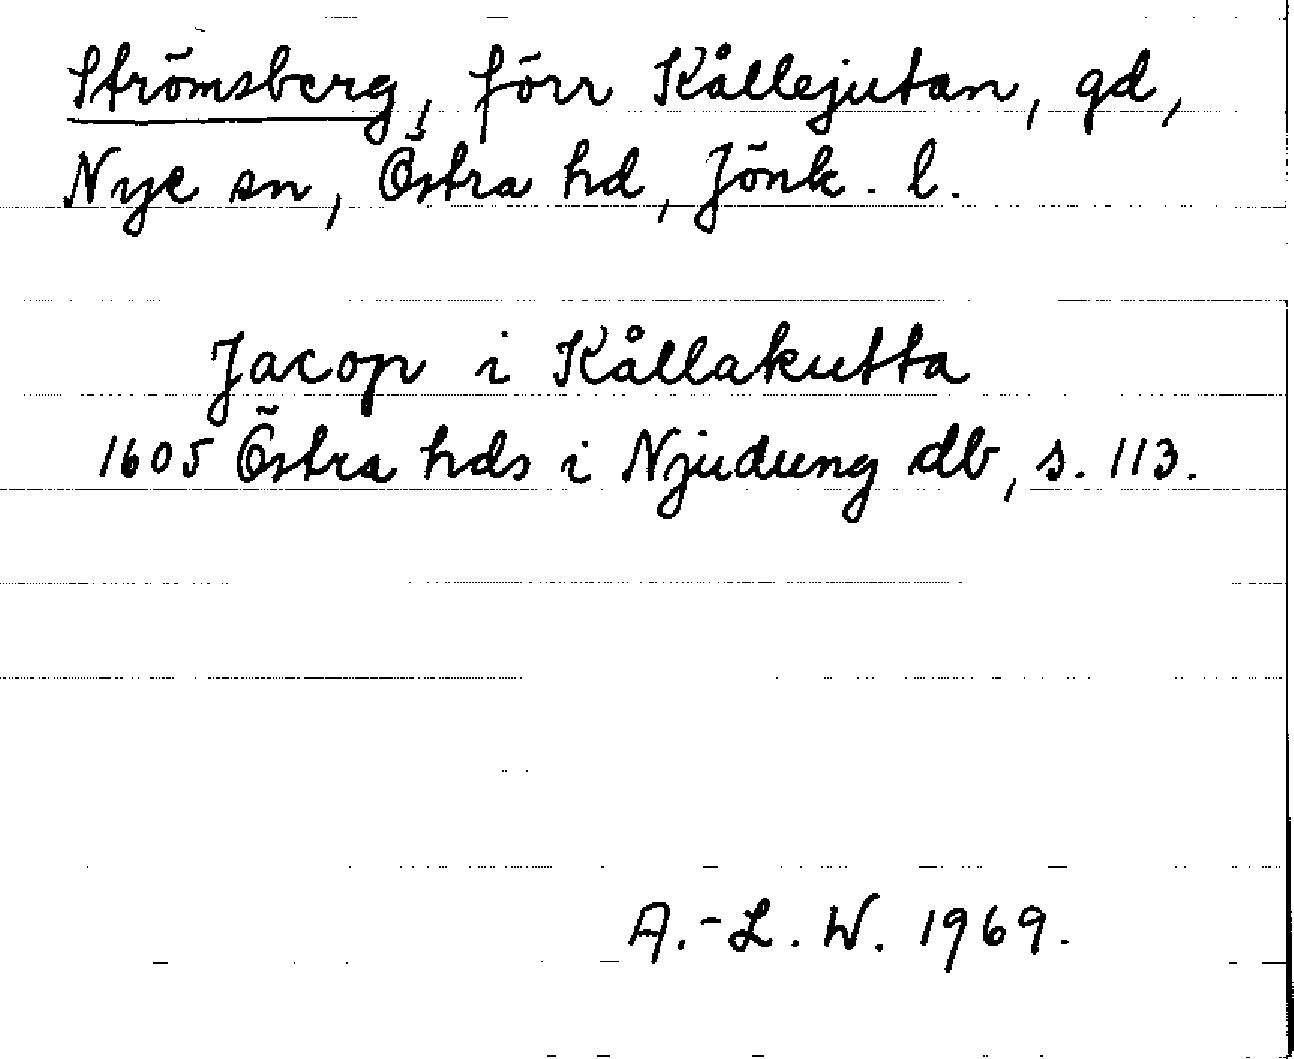 Strömsberg, förr Kållejutan, gd,
Nye sn, Östra hd, Jönk. l.
Jacop i Kållakutta
1605 Östra hds i Njudung db, s. 113.
A.-L. W. 1969.